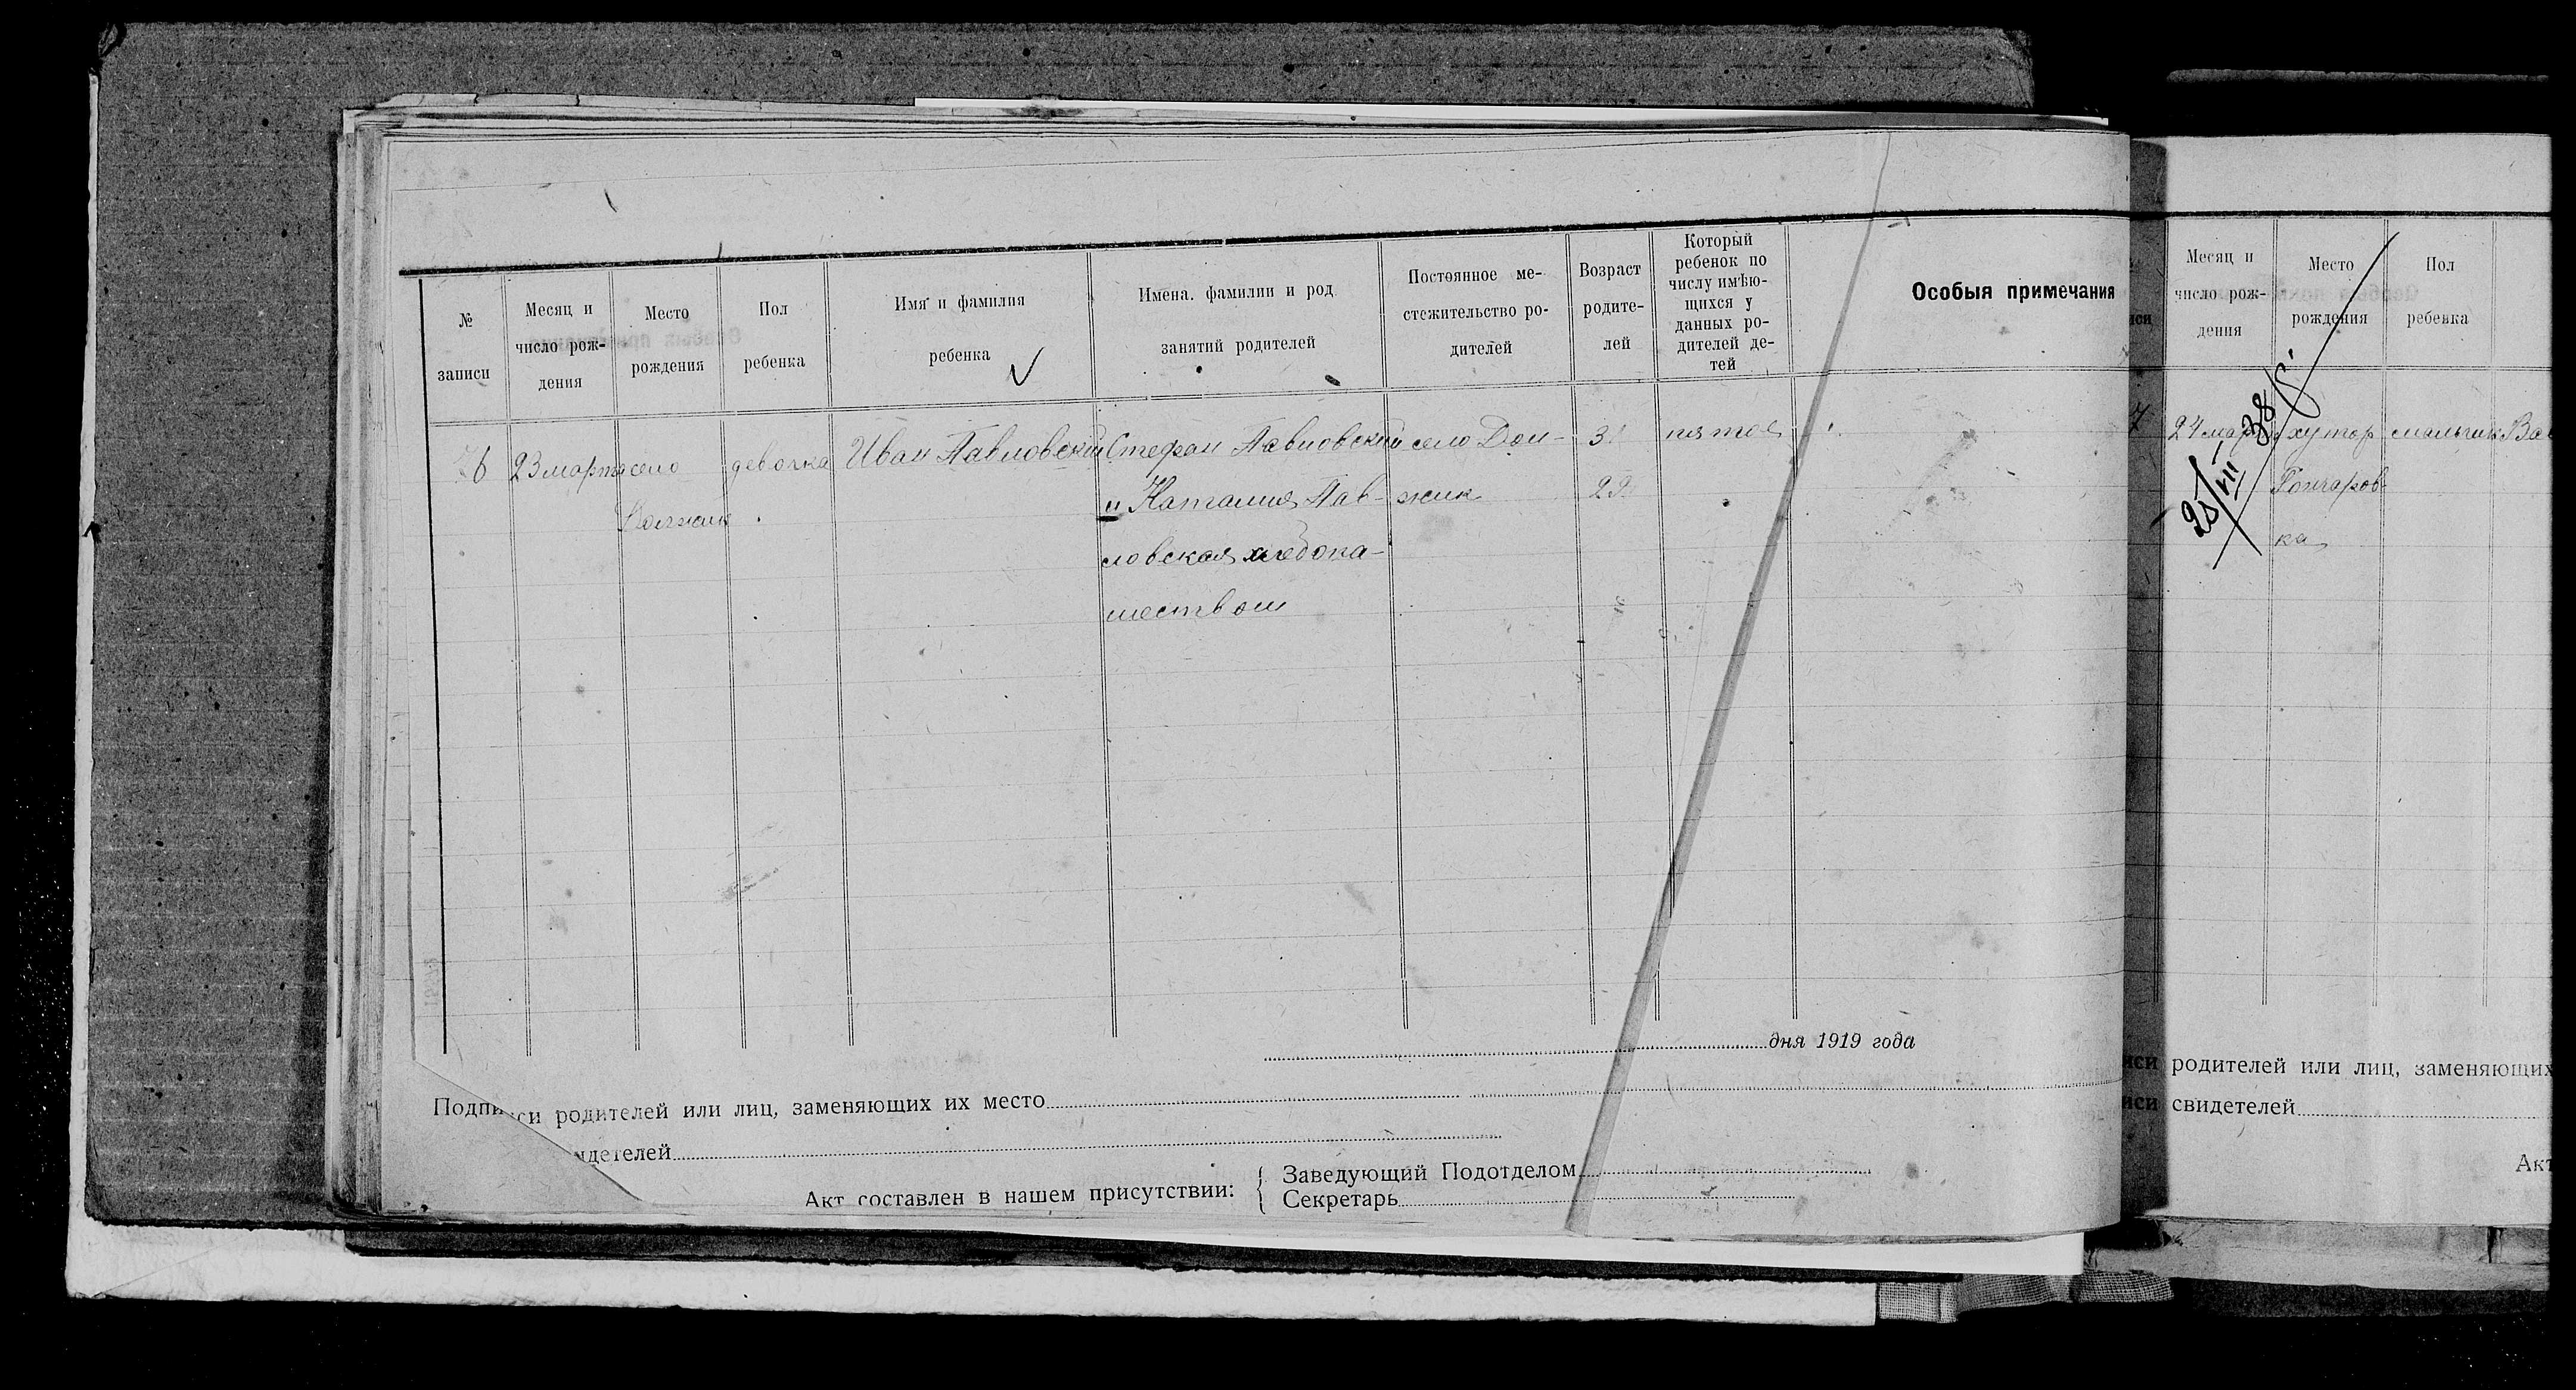 №
записи
Месяц и
число рож-
дения
Место
рождения
Пол
ребенка
Имя и фамилия
ребенка
Имена. фамилии и род
занятий родителей
Постоянное ме-
стожительство ро-
дителей
Возраст
родите-
лей
Который
ребенок по
числу имѣю-
щихся у
данных ро-
дителей де-
тей
Особыя примечания
23 марта
село
девочка
Иван Павловский
Стефан Павловский
" Наталия Пав-
ловская хлебопа-
шеством
село Дол-
жик
31
29
пятое
дня 1919 года
Подпи си родителей или лиц, заменяющих их место
идетелей
Акт составлен в нашем присутствии:
Заведующий Подотделом
Секретарь
Месяц и
число рож-
дения
Место
рождения
Пол
ребенка
7
24 мар
хутор
Гончаров-
ка
мальчик
25/VII 38
иси родителей или лиц, заменяющих
иси свидетелей
Акт